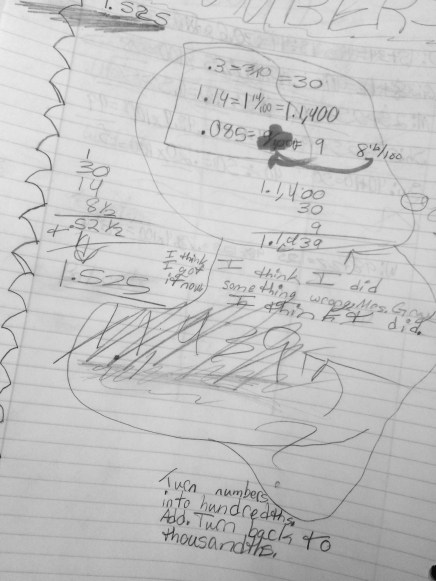 1.525
NUMBERS
.3=3/10=30
1.14=1 14/100=1.1,400
.085= 9
8 1/2/100
1
30
14
8 1/2
+ .52 1/2
1.525
1.1,400
30
9
1.1,439
I think
I got
it now
I think I did
something wrong Mrs. Gray
I think I did.
Turn numbers
into hundredths.
Add. Turn back to
thousandths.